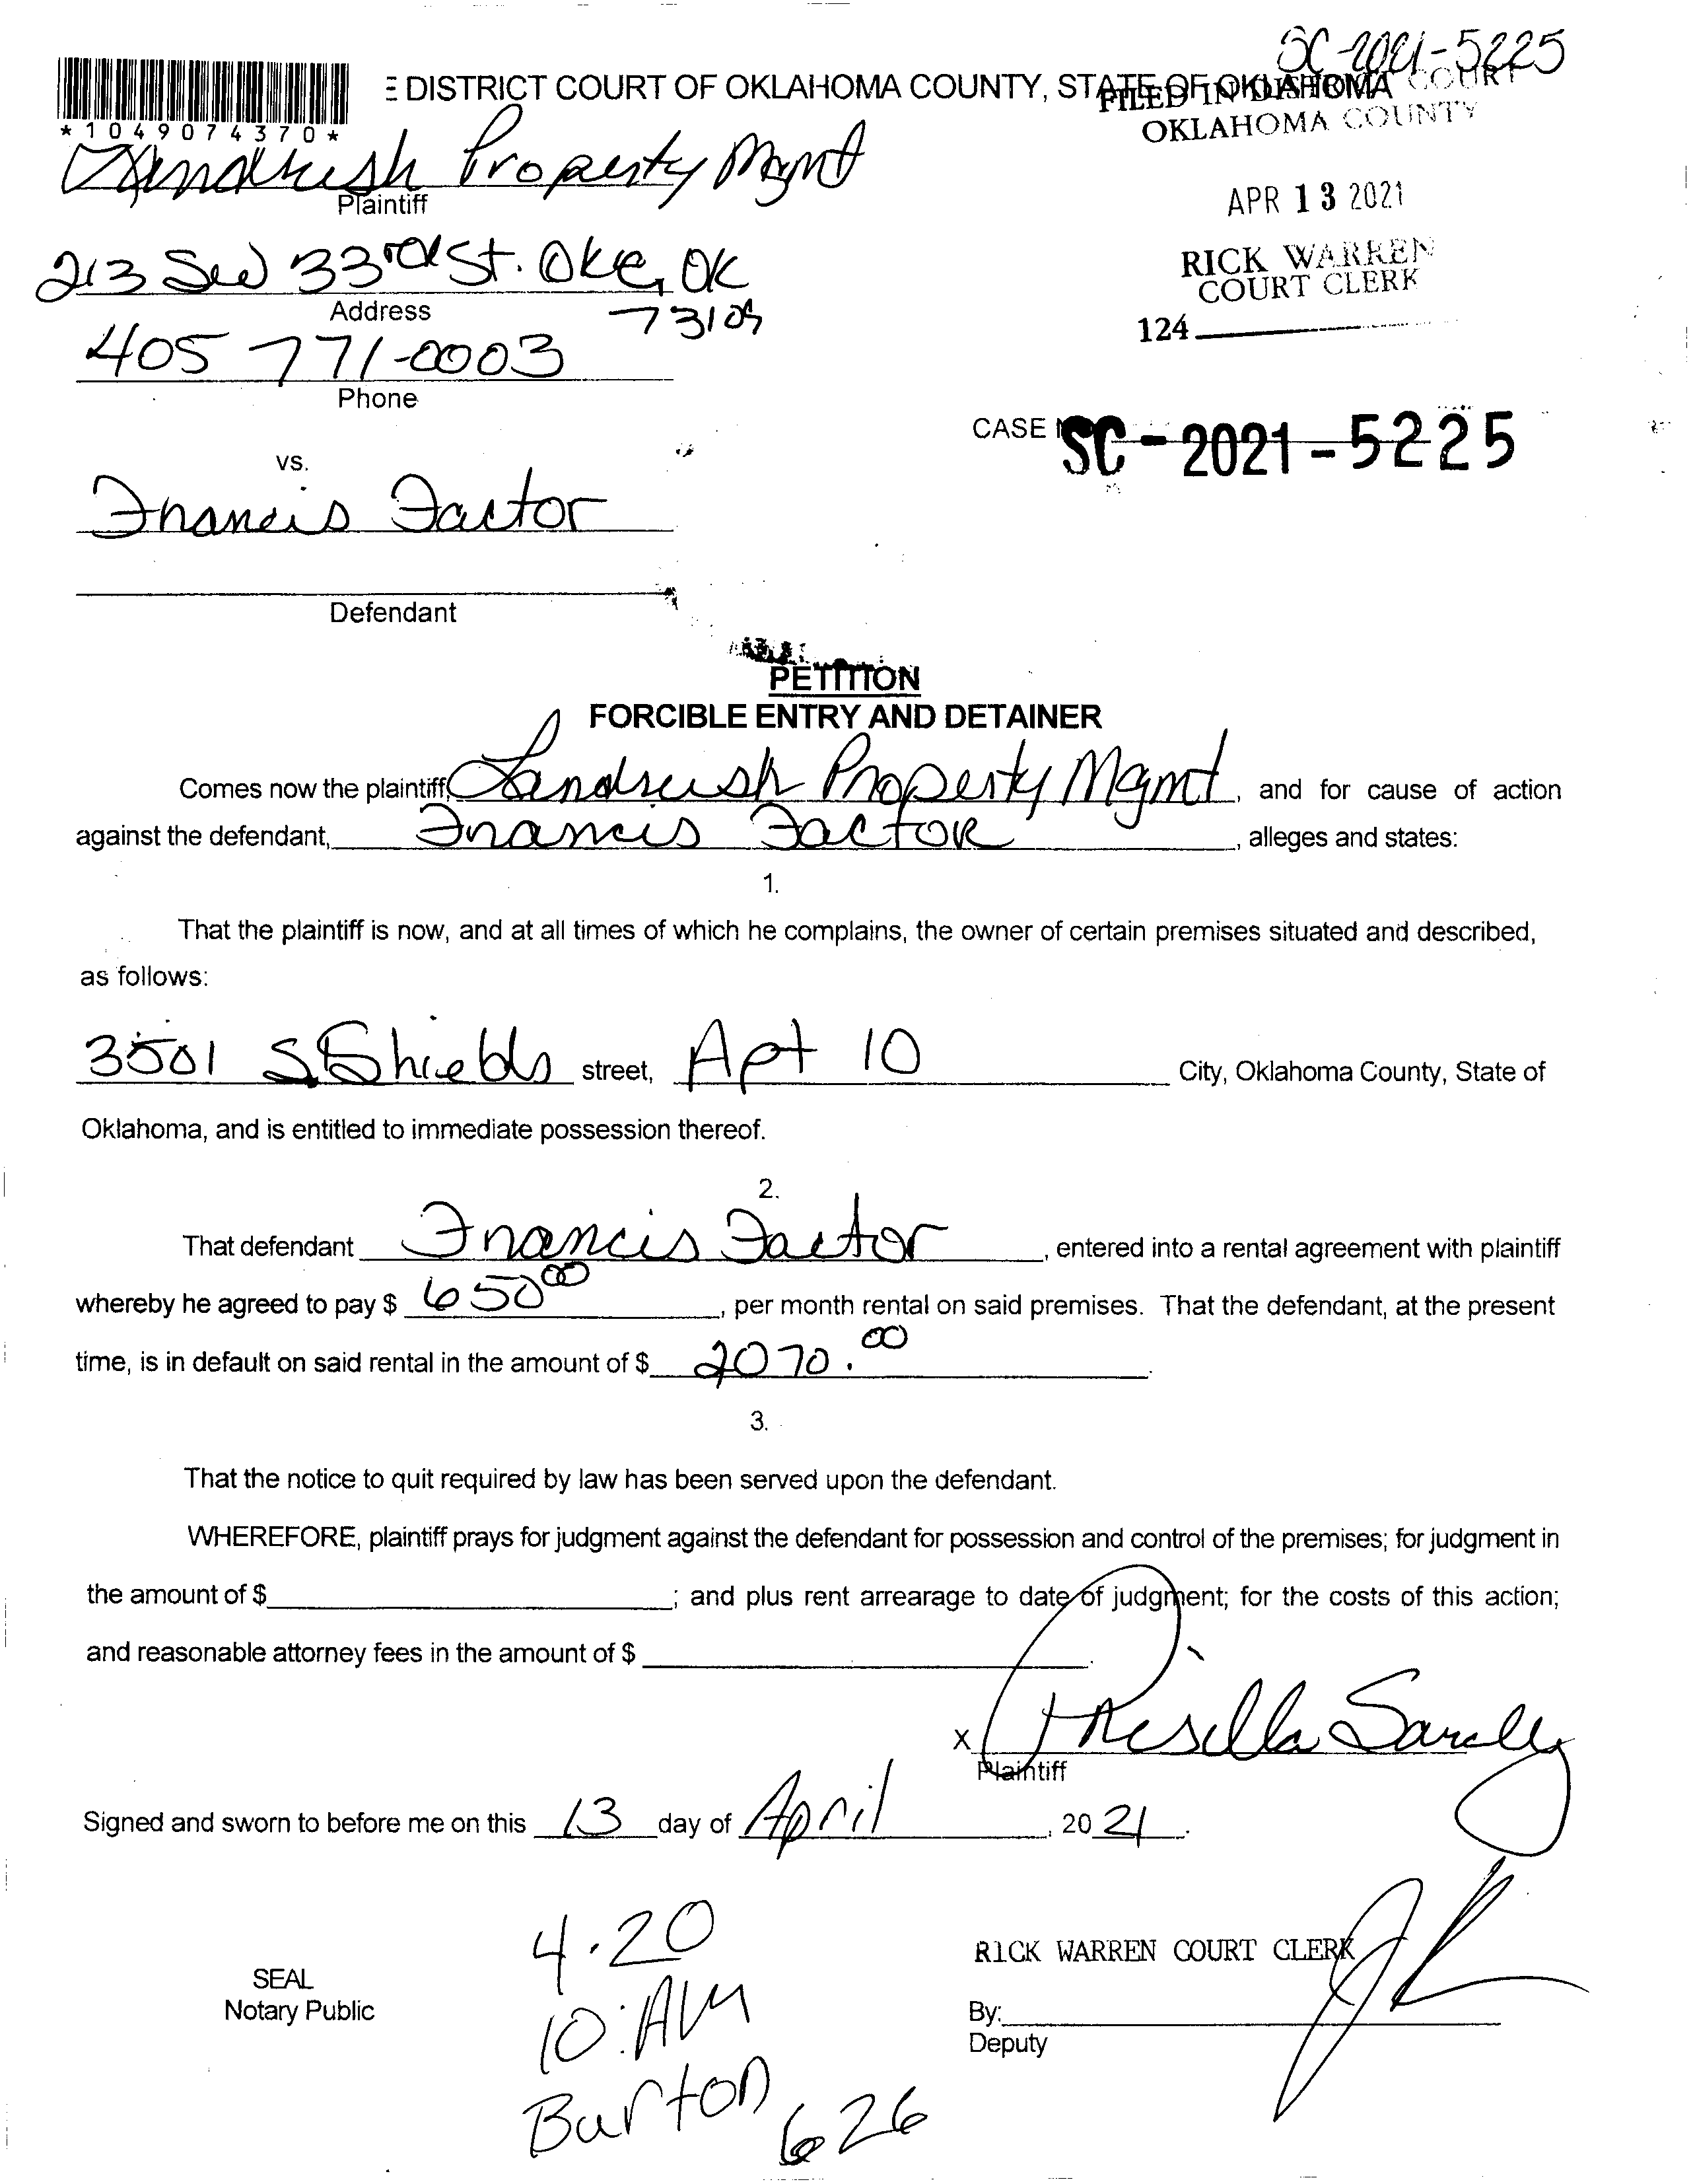 SC-2021-5225
E DISTRICT COURT OF OKLAHOMA COUNTY, STATE OF OKLAHOMA
FILED IN DISTRICT COURT
OKLAHOMA COUNTY
*1049074370*
Landrush Property Mgmt
Plaintiff
APR 13 2021
213 SW 33rd St. Okc, OK
RICK WARREN
COURT CLERK
Address
73109
124
405 771-0003
Phone
CASE SC-2021-5225
vs.
Francis Factor
Defendant
PETITION
FORCIBLE ENTRY AND DETAINER
Comes now the plaintiff, Landrush Property Mgmt, and for cause of action
against the defendant, Francis Factor, alleges and states:
1.
That the plaintiff is now, and at all times of which he complains, the owner of certain premises situated and described,
as follows:
3501 S. Shields street, Apt 10 City, Oklahoma County, State of
Oklahoma, and is entitled to immediate possession thereof.
2.
That defendant Francis Factor, entered into a rental agreement with plaintiff
whereby he agreed to pay $ 650 00, per month rental on said premises. That the defendant, at the present
time, is in default on said rental in the amount of $ 2070.00.
3.
That the notice to quit required by law has been served upon the defendant.
WHEREFORE, plaintiff prays for judgment against the defendant for possession and control of the premises; for judgment in
the amount of $ ; and plus rent arrearage to date of judgment; for the costs of this action;
and reasonable attorney fees in the amount of $ .
X Prisilla
Plaintiff
Signed and sworn to before me on this 13 day of April, 20 21.
4.20
RICK WARREN COURT CLERK
SEAL
Notary Public
10:AM
By:
Deputy
Burton
626